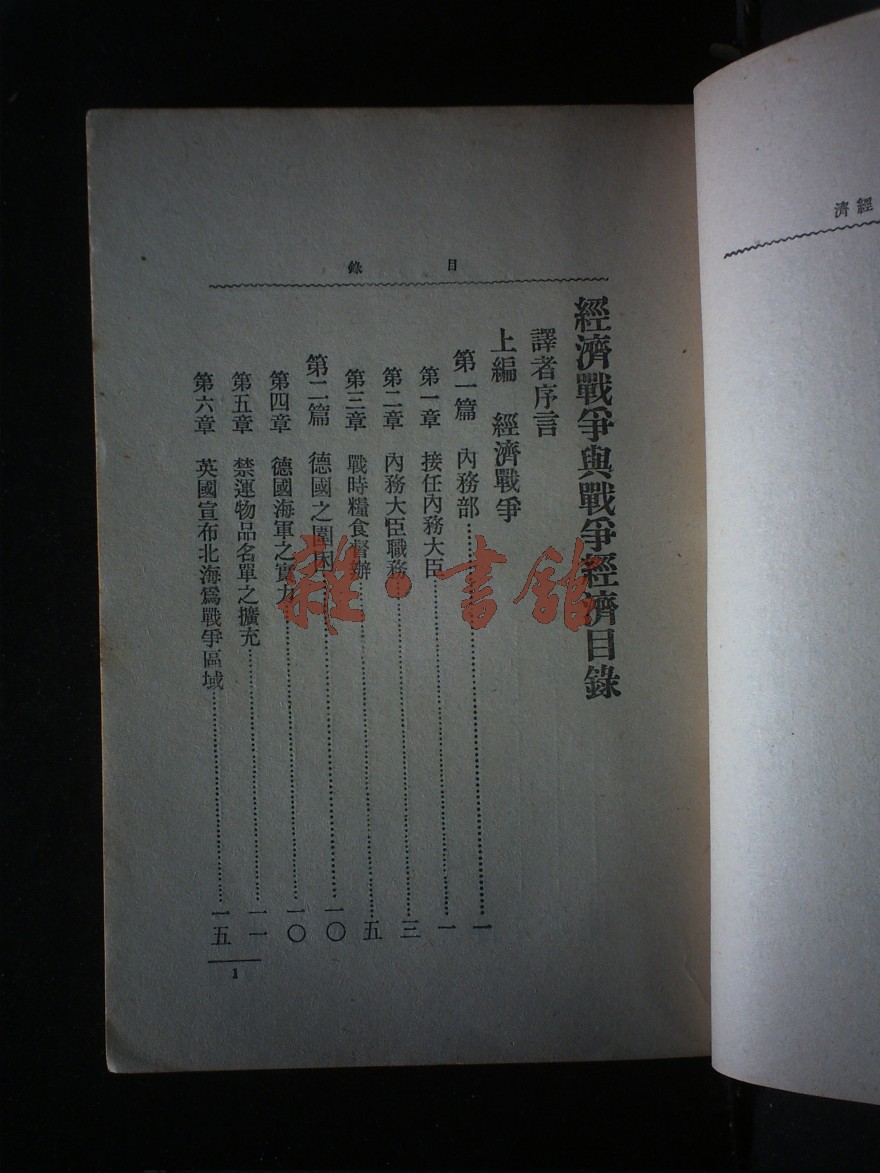 目錄
經濟戰爭與戰爭經濟目錄
譯者序言
上編 經濟戰爭
第一篇 內務部……一
第一章 接任內務大臣……一
第二章 內務大臣職務……三
第三章 戰時糧食督辦……五
第二篇 德國之圍困……一〇
第四章 德國海軍之實力……一〇
第五章 禁運物品名單之擴充……一一
第六章 英國宣布北海爲戰爭區域……一五
1
經濟
雜·書館